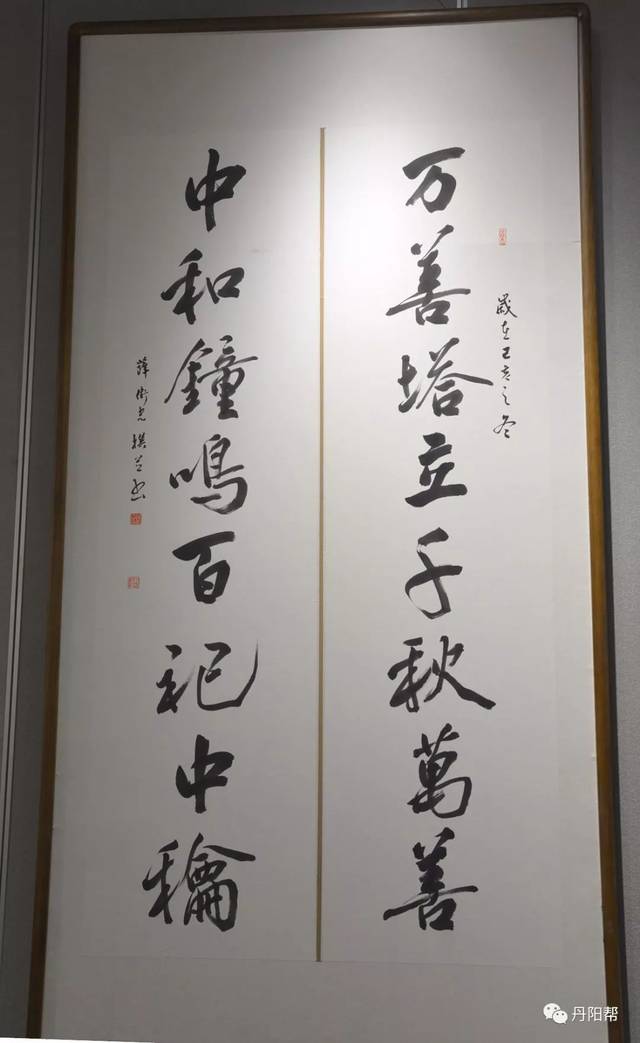 歲在己亥之冬
万善塔立千秋萬善
中和鐘鳴百祀中龢
薛衛 撰并書
丹阳帮